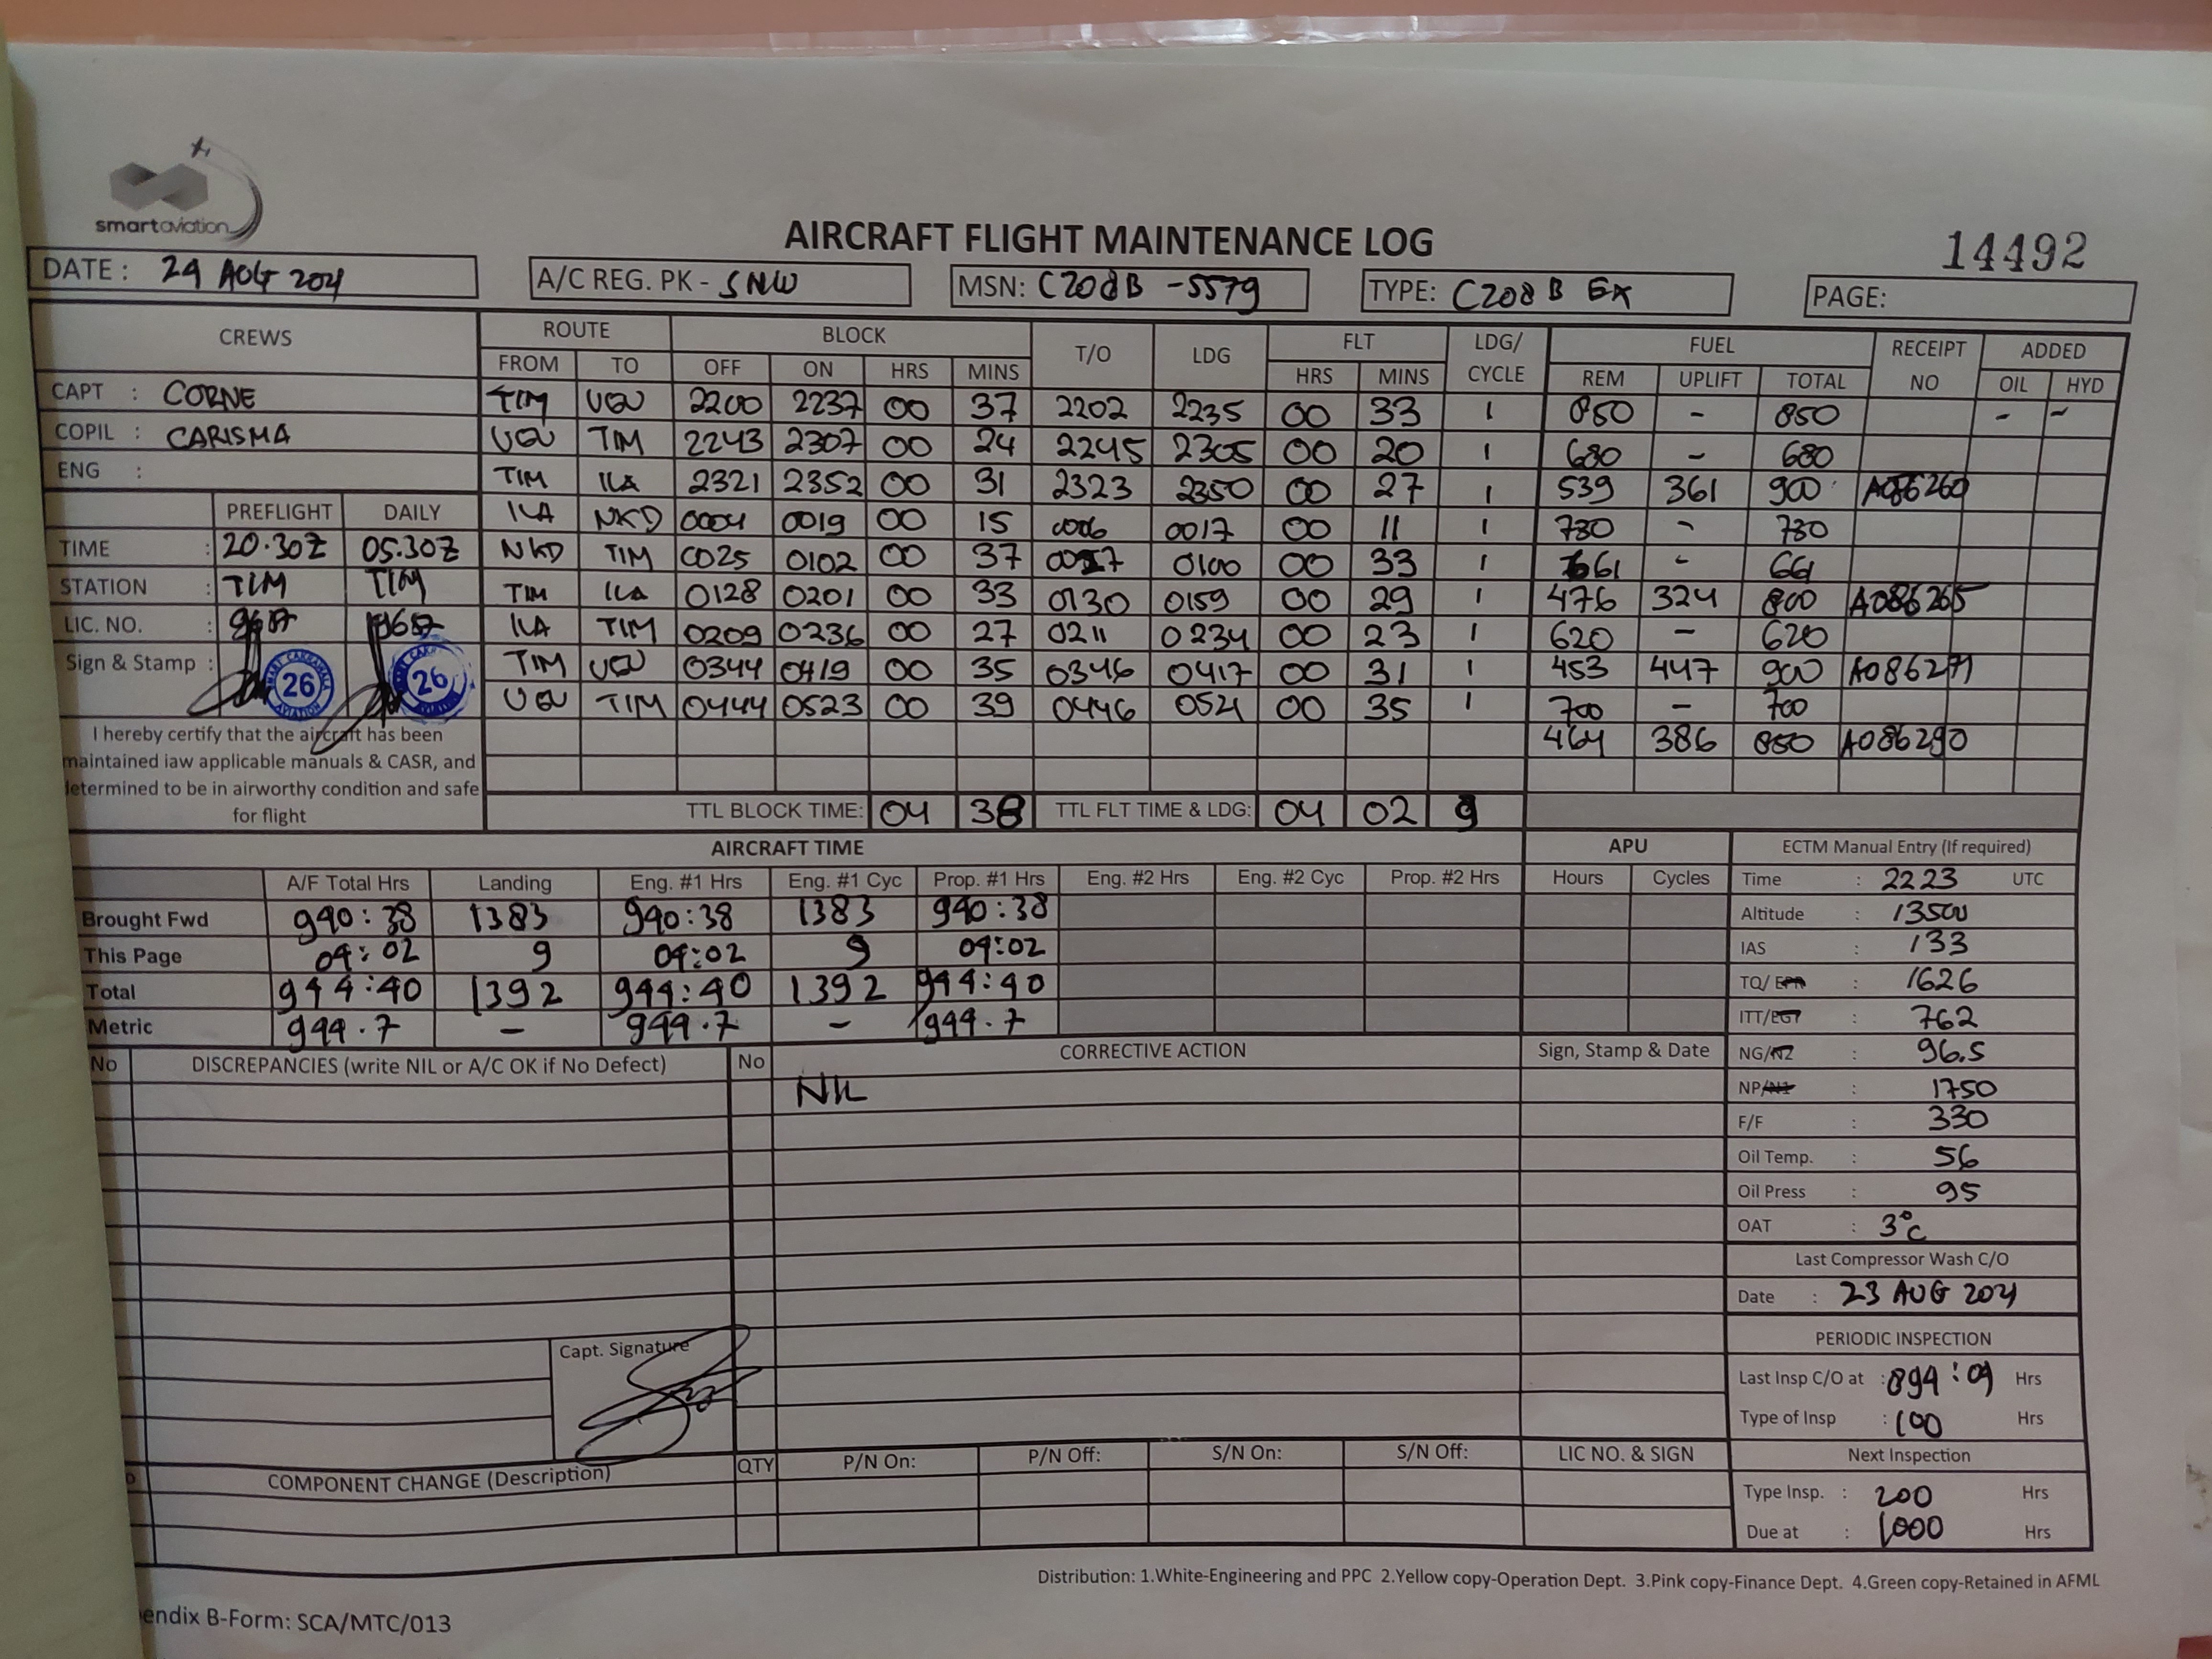 smartaviation
AIRCRAFT FLIGHT MAINTENANCE LOG
14492
DATE : 24 AUG 2021
A/C REG. PK - SNW
MSN: C208B -5579
TYPE: C208 B EX
PAGE:
CREWS ROUTE BLOCK T/O LDG FLT LDG/ CYCLE FUEL RECEIPT NO ADDED
FROM TO OFF ON HRS MINS HRS MINS REM UPLIFT TOTAL OIL HYD
CAPT : CORNE
COPIL : CARISMA
ENG :
TIM UGU 2200 2237 00 37 2202 2235 00 33 1 850 - 850 - -
UGU TIM 2243 2307 00 24 2245 2305 00 20 1 680 - 680
TIM ILA 2321 2352 00 31 2323 2350 00 27 1 539 361 900 A086260
ILA NKD 0004 0019 00 15 0006 0017 00 11 1 780 - 780
NKD TIM 0025 0102 00 37 0027 0100 00 33 1 661 - 661
TIM ILA 0128 0201 00 33 0130 0159 00 29 1 476 324 800 A086265
ILA TIM 0209 0236 00 27 0211 0234 00 23 1 620 - 620
TIM UGU 0344 0419 00 35 0346 0417 00 31 1 453 447 900 A086271
UGU TIM 0444 0523 00 39 0446 0521 00 35 1 700 - 700
464 386 850 A086290
PREFLIGHT DAILY
TIME : 20.30Z 05.30Z
STATION : TIM TIM
LIC. NO. :
Sign & Stamp : 26 26
I hereby certify that the aircraft has been
maintained iaw applicable manuals & CASR, and
determined to be in airworthy condition and safe
for flight
TTL BLOCK TIME: 04 38 TTL FLT TIME & LDG: 04 02 9
AIRCRAFT TIME APU
A/F Total Hrs Landing Eng. #1 Hrs Eng. #1 Cyc Prop. #1 Hrs Eng. #2 Hrs Eng. #2 Cyc Prop. #2 Hrs Hours Cycles
Brought Fwd 940:38 1383 940:38 1383 940:38
This Page 04:02 9 04:02 9 04:02
Total 944:40 1392 944:40 1392 944:40
Metric 944.7 - 944.7 - 944.7
ECTM Manual Entry (If required)
Time : 2223 UTC
Altitude : 13500
IAS : 133
TQ/ EPR : 1626
ITT/EGT : 762
NG/N2 : 96.5
NP/N1 : 1750
F/F : 330
Oil Temp. : 56
Oil Press : 95
OAT : 3°C
Last Compressor Wash C/O
Date : 23 AUG 2021
PERIODIC INSPECTION
Last Insp C/O at : 894:09 Hrs
Type of Insp : 100 Hrs
Next Inspection
Type Insp. : 200 Hrs
Due at : 1000 Hrs
No DISCREPANCIES (write NIL or A/C OK if No Defect) No CORRECTIVE ACTION Sign, Stamp & Date
NIL
Capt. Signature
COMPONENT CHANGE (Description) QTY P/N On: P/N Off: S/N On: S/N Off: LIC NO. & SIGN
Distribution: 1.White-Engineering and PPC 2.Yellow copy-Operation Dept. 3.Pink copy-Finance Dept. 4.Green copy-Retained in AFML
endix B-Form: SCA/MTC/013